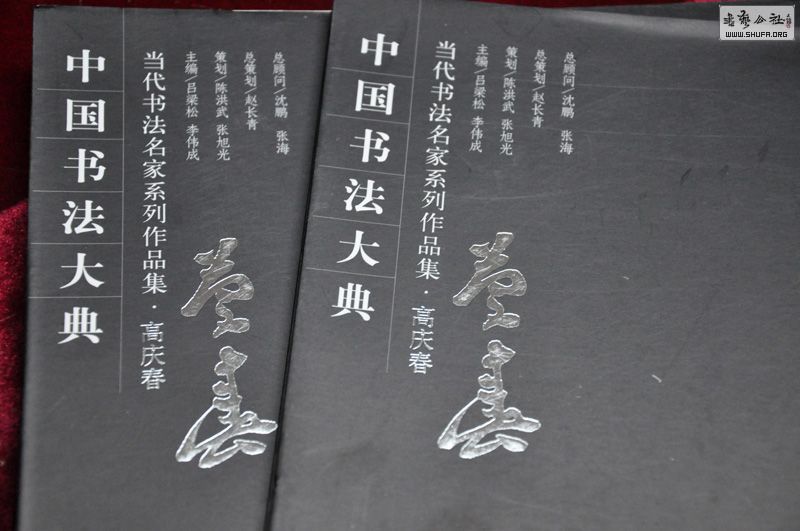 中国书法大典
当代书法名家系列作品集·高庆春
总顾问/沈鹏 张海
总策划/赵长青
策划/陈洪武 张旭光
主编/吕梁松 李伟成
中国书法大典
当代书法名家系列作品集·高庆春
总顾问/沈鹏 张海
总策划/赵长青
策划/陈洪武 张旭光
主编/吕梁松 李伟成
WWW.SHUFA.ORG